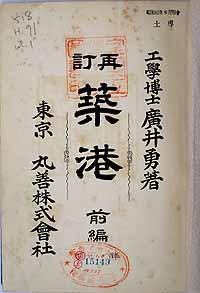 工學博士 廣井勇著
再訂
築港
前編
東京 丸善株式會社
15149